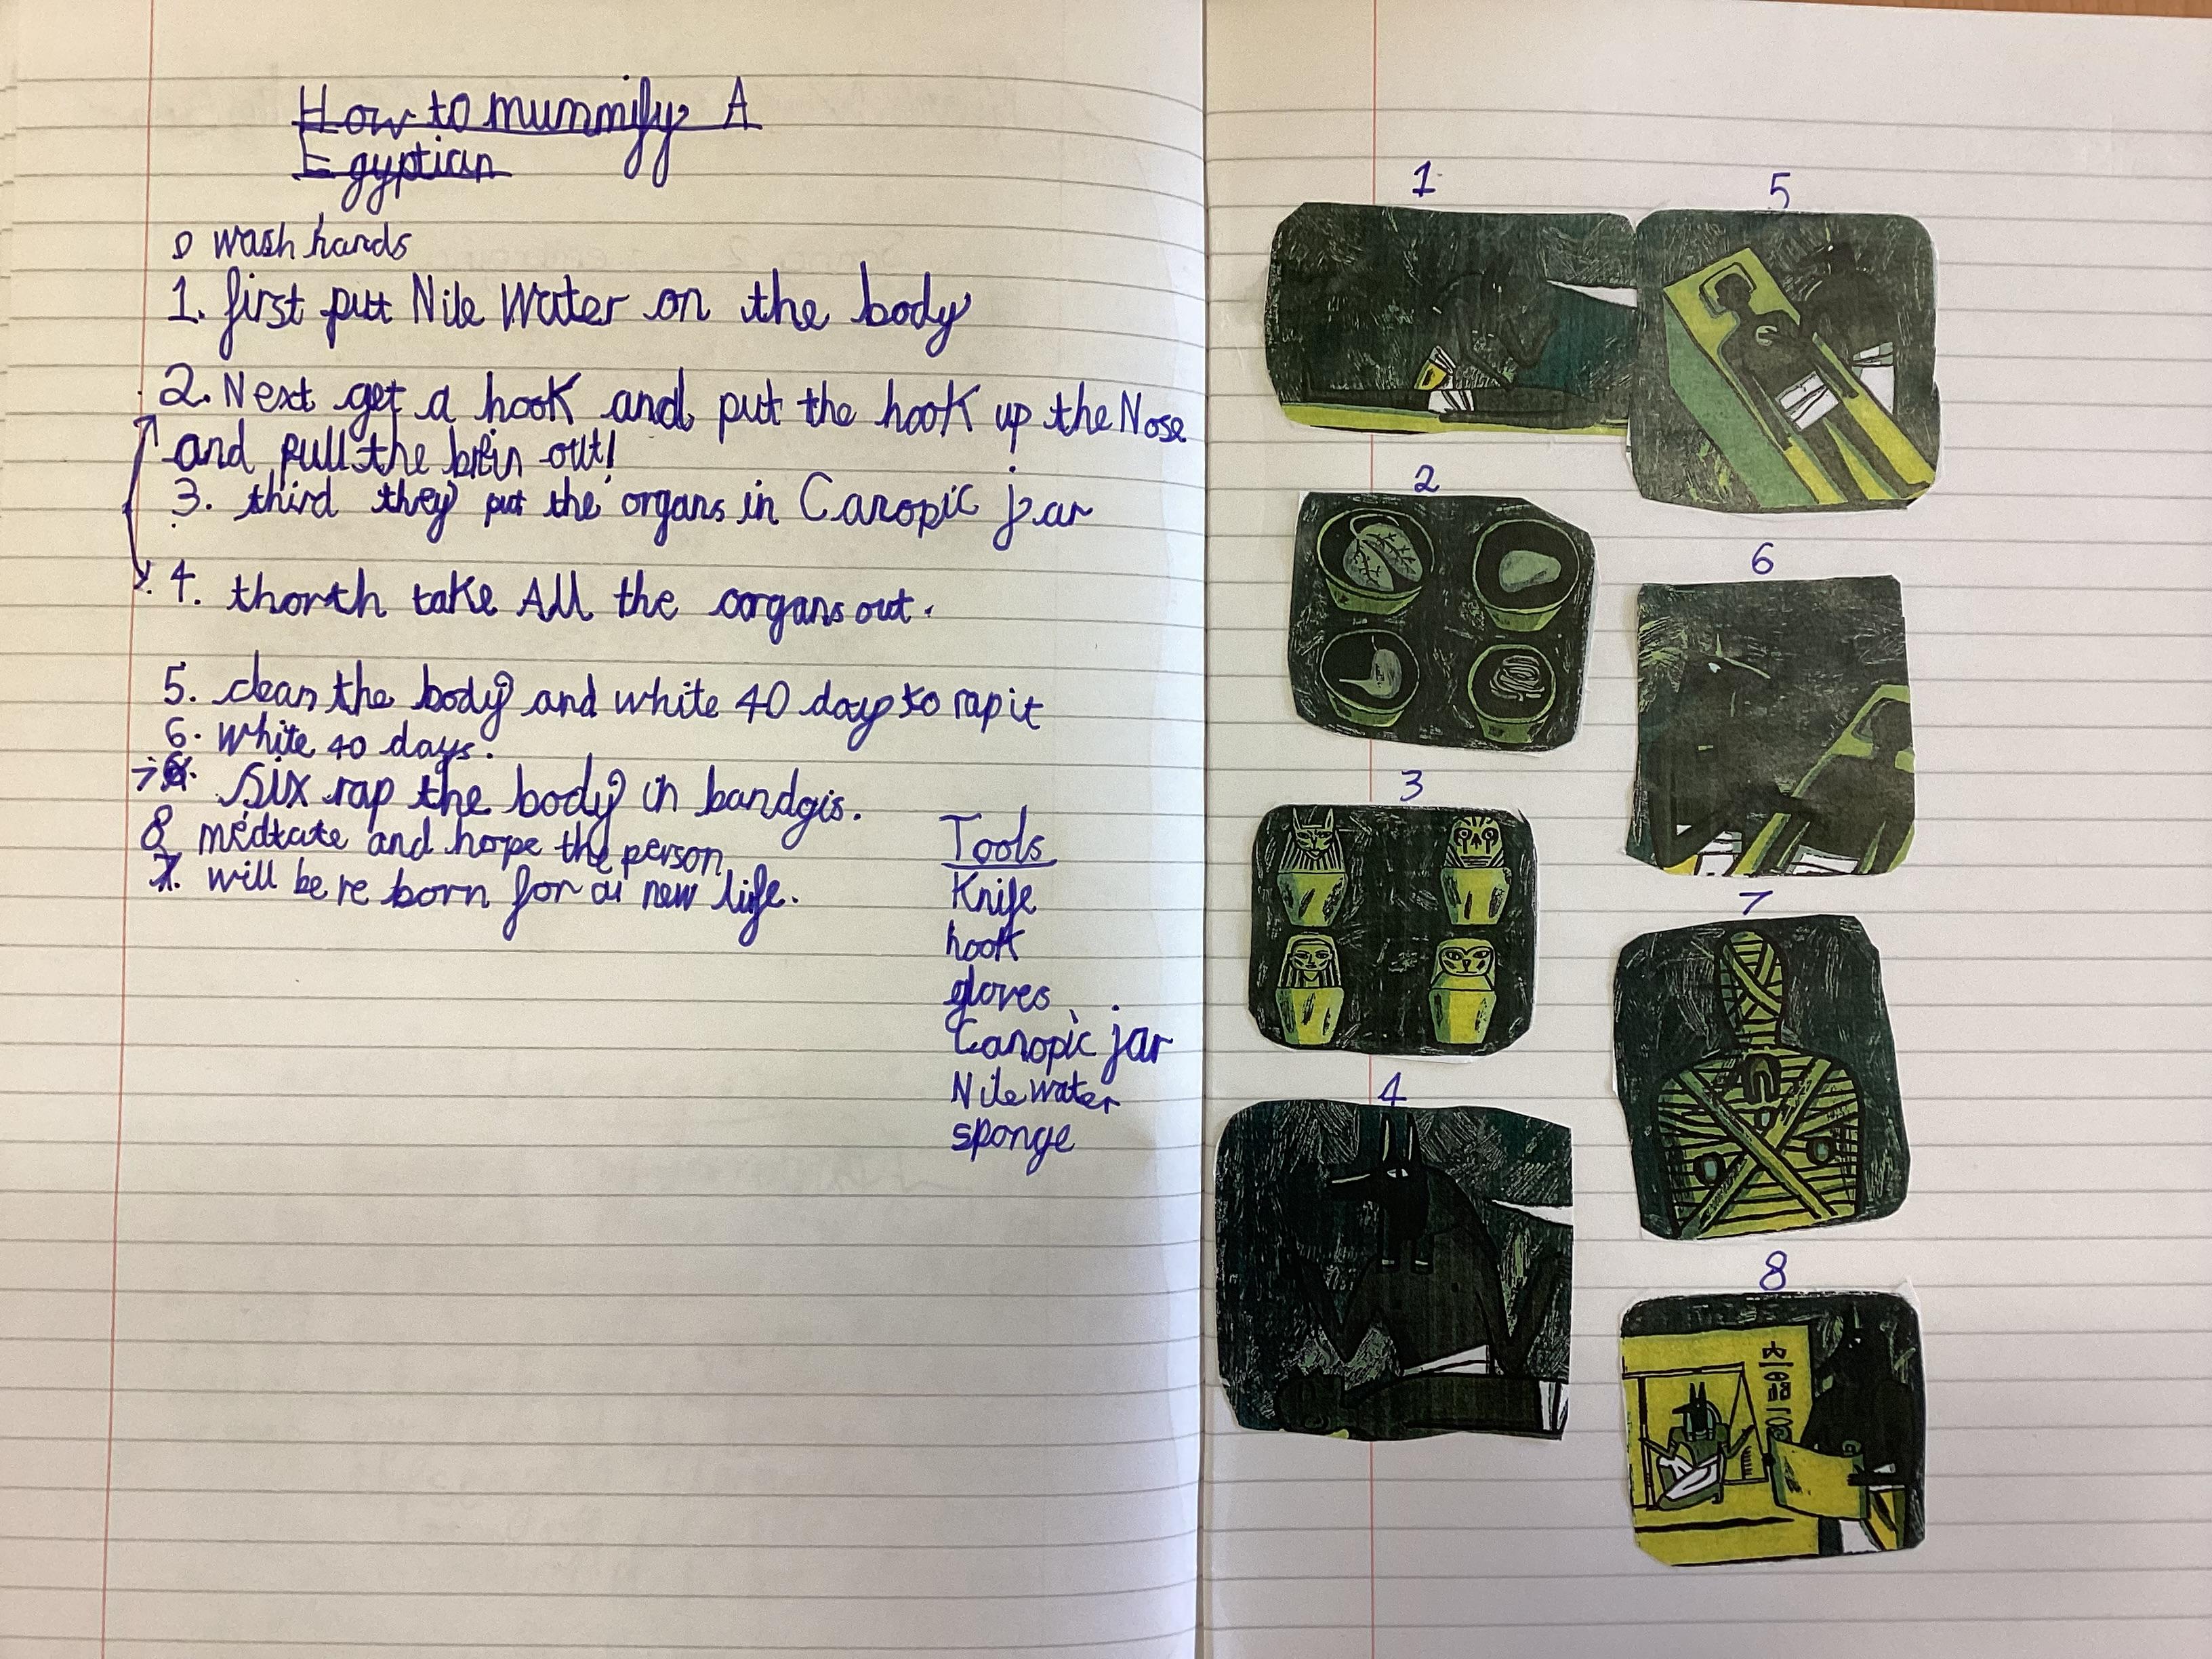 How to mummify A
Egyptian
0 wash hands
1. first put Nile Water on the body
2. Next get a hook and put the hook up the Nose
and pull the brain out!
3. third they put the organs in Canopic jar
4. thorth take All the oorgans out.
5. clean the body and white 40 day to rap it
6. white 40 days.
7 six rap the body in bandgis.
8 medtate and hope the person
7. will be re born for a new life.
Tools
Knife
hook
gloves
Canopic jar
Nile water
sponge
1
5
2
6
3
7
4
8